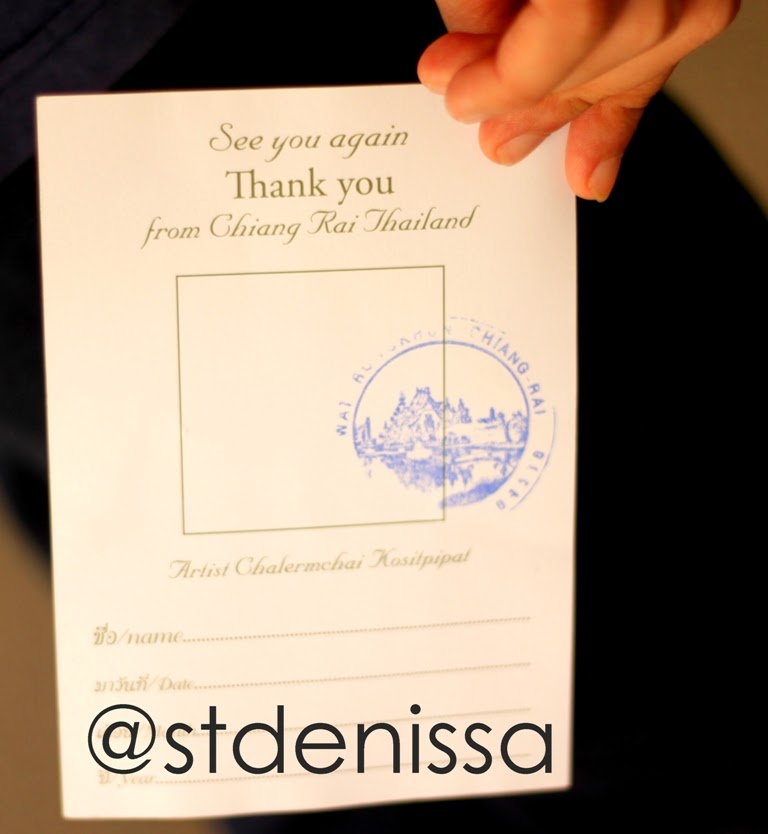 See you again
Thank you
from Chiang Rai Thailand
WAT RONGKHUN CHIANG-RAI
Artist Chalermchai Kositpipat
ชื่อ/name
มาวันที่/Date
ปี/Year
@stdenissa